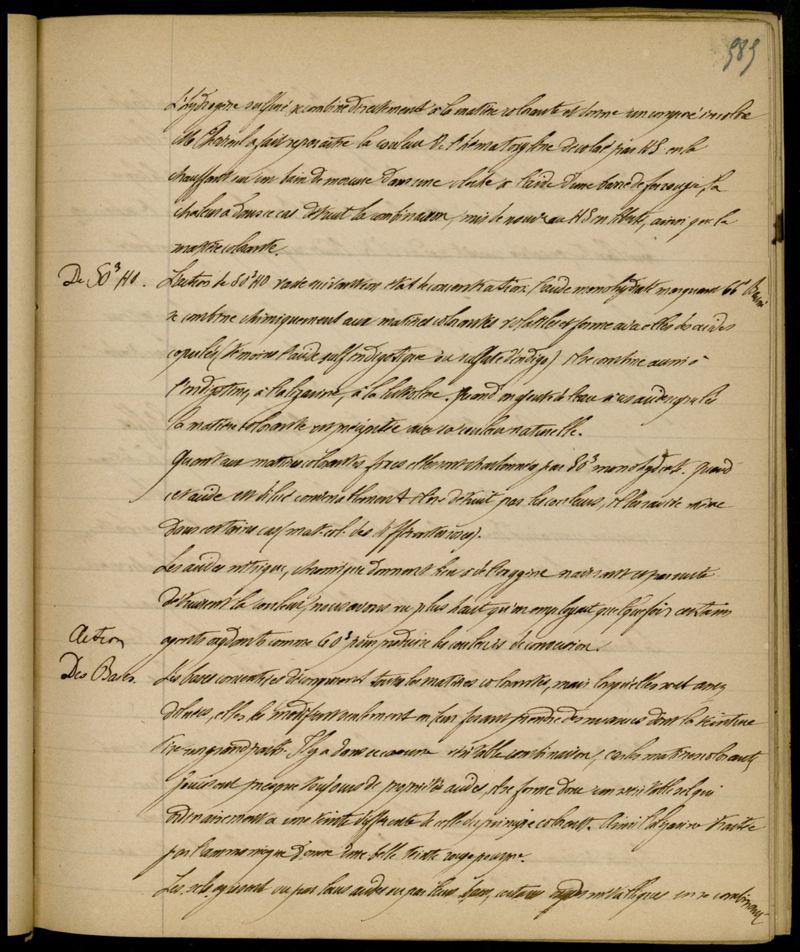 585
L'hydrogène sulfuré se combine directement à la matière colorante et donne un composé incolore
Mr Chevreul a fait reparaître la couleur de l'hématoxyline décolorée par HS en la
chauffant sur un bain de mercure dans une cloche à l'aide d'une barre de fer rougie, la
chaleur a dans ce cas détruit la combinaison, mis de nouveau HS en liberté, ainsi que la
matière colorante.
De SO³HO. L'action de SO³HO varie suivant son état de concentration, l'acide monohydraté marquant 66° Baumé
se combine chimiquement aux matières colorantes et forme avec elles des acides
copulés (témoins l'acide sulfindigotique ou sulfate d'indigo) il se combine aussi à
l'indigotine, à l'alizarine, à la lutéoline. Quand on ajoute de l'eau à ces acides copulés
la matière colorante est précipitée avec sa couleur naturelle.
Quant aux matières colorantes fixes elles sont charbonnées par SO³ monohydraté. Quand
cet acide est dilué les couleurs, il les avive même
dans certains cas (mat. col. des différentes).
Les acides nitrique, chromique donnent lieu à de l'oxygène naissant et par suite
détruisent la couleur, nous avons vu plus haut qu'on employait quelquefois certains
agents oxydants comme pour produire les couleurs de conversion.
Action
Des Bases.
Les bases concentrées décomposent toutes les matières colorantes, mais lorsqu'elles sont assez
diluées, elles les modifient seulement en leur faisant prendre des nuances dont la teinture
tire un grand parti. Il y a dans ce cas une véritable combinaison, car les matières colorantes
jouissent presque toujours de propriétés acides, il se forme donc un véritable sel qui
ordinairement a une teinte différente de celle du principe colorant. Ainsi l'alizarine traitée
par l'ammoniaque donne une belle teinte rouge pourpre.
Les sels agissent ou par leurs acides ou par leurs bases, certains oxydes métalliques en se combinant